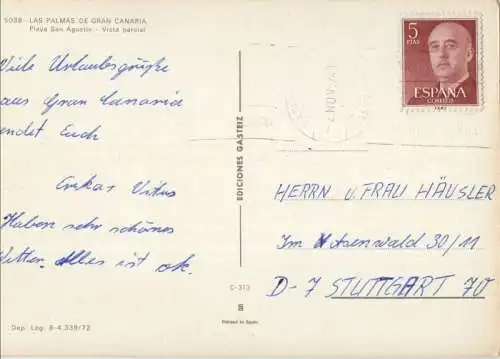 5098 - LAS PALMAS DE GRAN CANARIA
Playa San Agustín - Vista parcial
Viele Urlaubsgrüße
aus Gran Canaria
endet Euch
Erika + Vitus
Haben sehr schönes
Wetter. Alles ist ok.
EDICIONES GASTEIZ
C-313
Printed in Spain
Dep. Leg. B-4.339/72
5
PTAS
ESPAÑA
CORREOS
HERRN u. FRAU HÄUSLER
Im Asenwald 30/11
D-7 STUTTGART 70